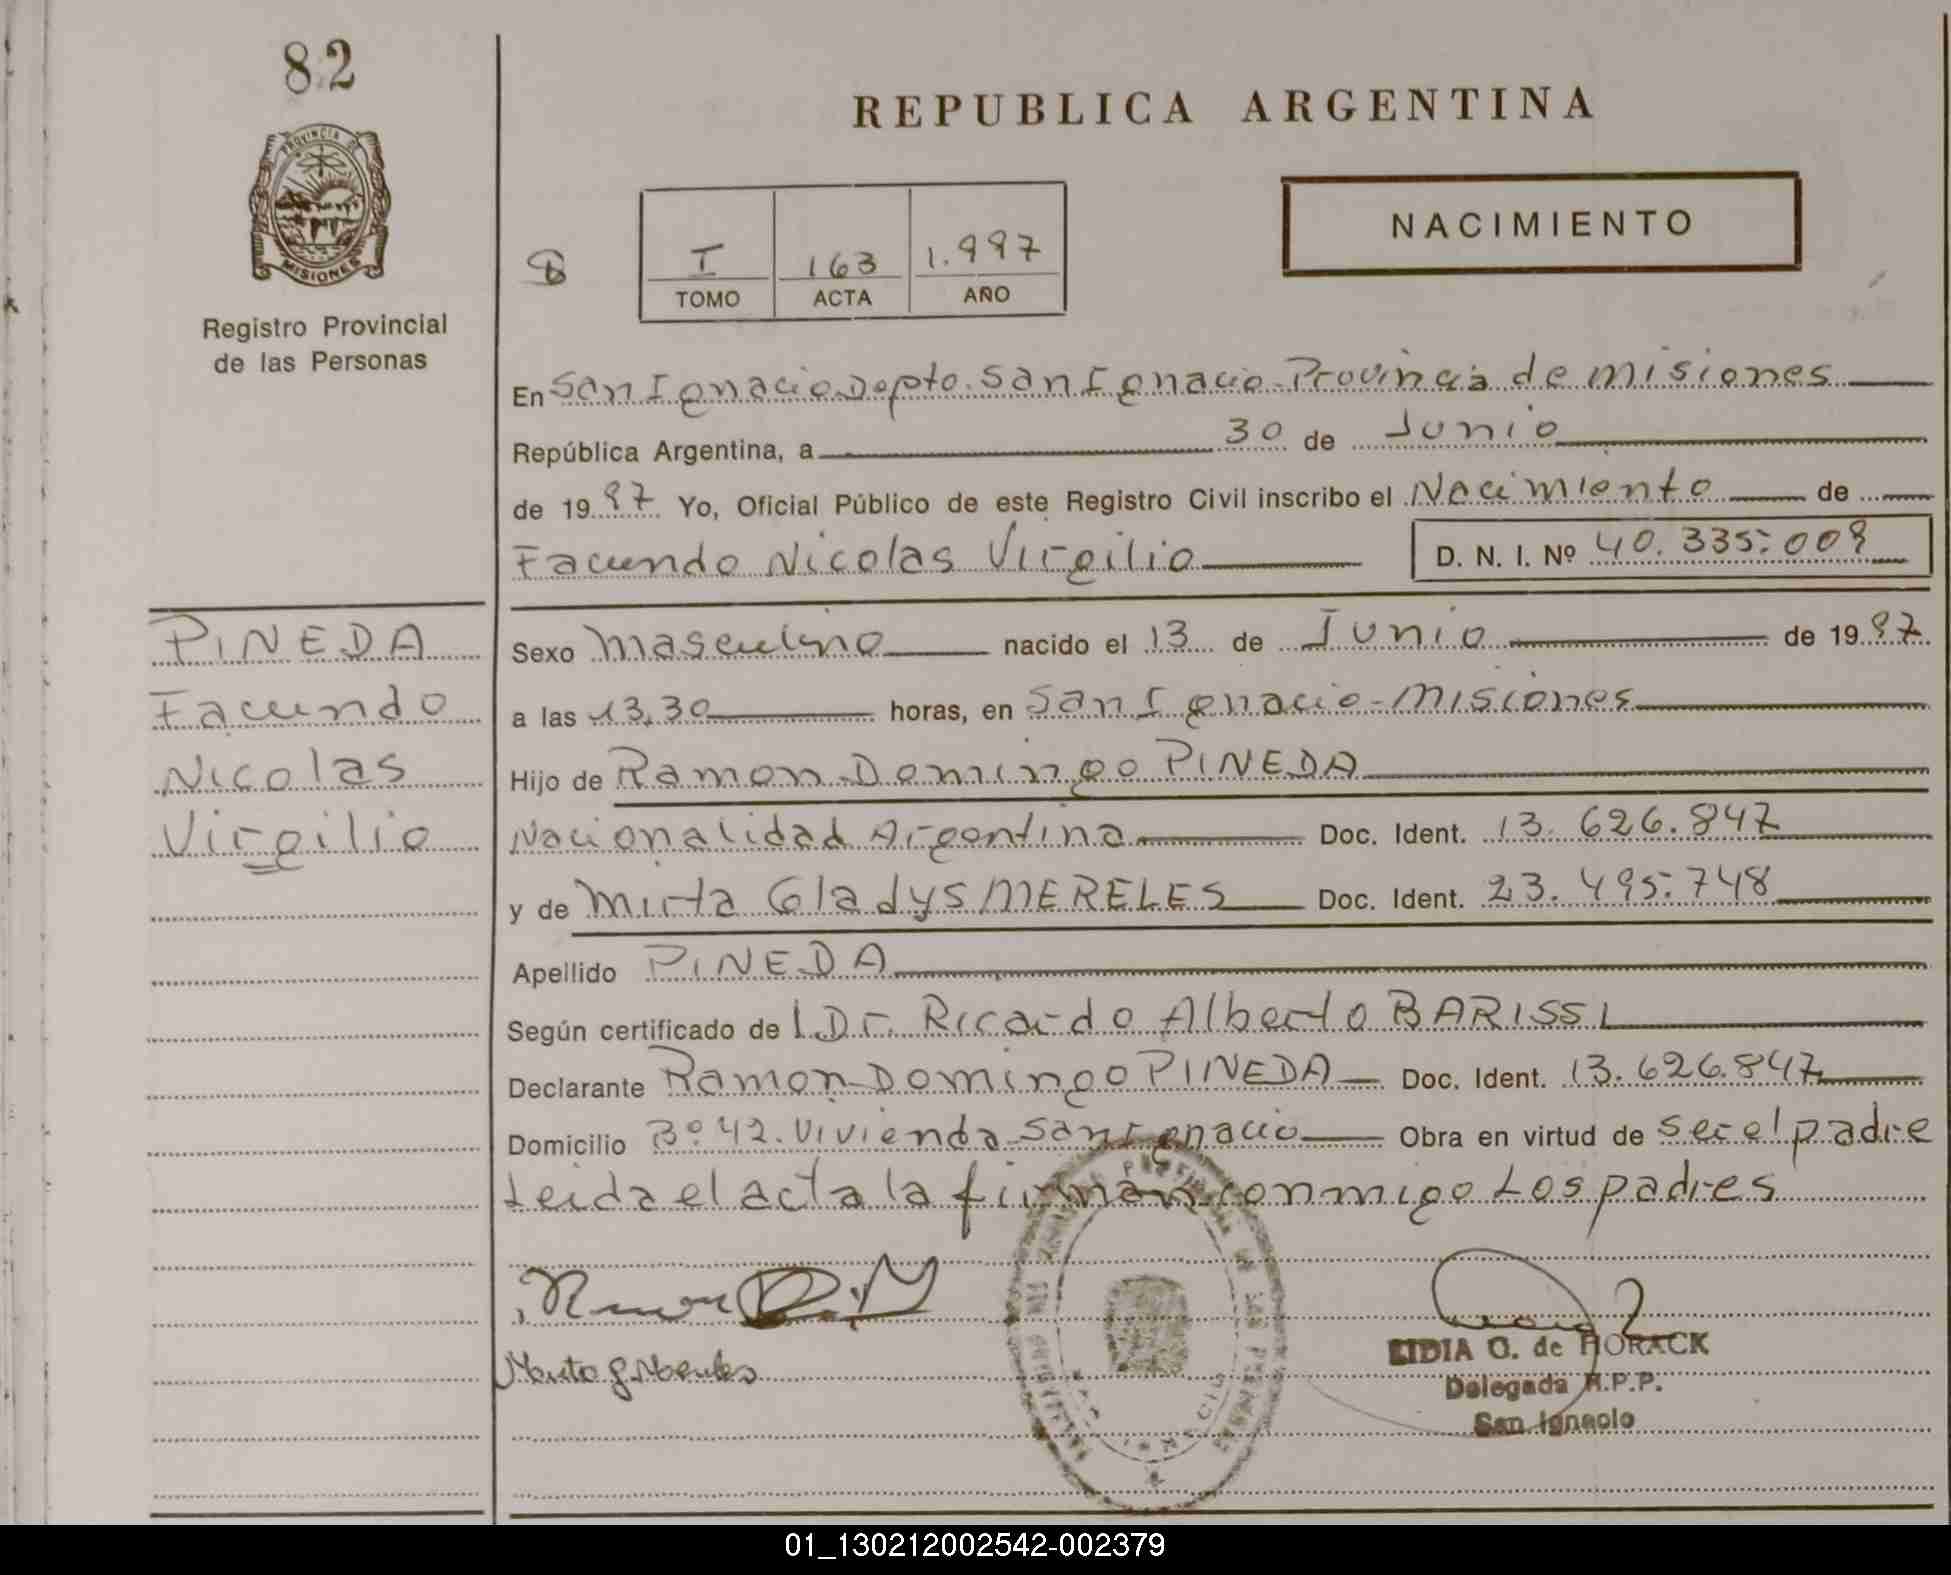 82
REPUBLICA ARGENTINA
PROVINCIA DE
MISIONES
Registro Provincial
de las Personas
I 163 1.997
TOMO ACTA AÑO
NACIMIENTO
En San Ignacio Depto. San Ignacio - Provincia de Misiones
República Argentina, a 30 de Junio
de 1997 Yo, Oficial Público de este Registro Civil inscribo el Nacimiento de
Facundo Nicolas Virgilio D. N. I. Nº 40.335.009
PINEDA
Facundo
Nicolas
Virgilio
Sexo Masculino nacido el 13 de Junio de 1997
a las 13,30 horas, en San Ignacio - Misiones
Hijo de Ramon Domingo PINEDA
Nacionalidad Argentina Doc. Ident. 13.626.847
y de Mirta Gladys MERELES Doc. Ident. 23.495.748
Apellido PINEDA
Según certificado de l Dr. Ricardo Alberto BARISSI
Declarante Ramon Domingo PINEDA Doc. Ident. 13.626.847
Domicilio Bº 42 Vivienda San Ignacio Obra en virtud de ser el padre
Leida el acta la firman conmigo Los padres
LIDIA G. de HORACK
Delegada R.P.P.
San Ignacio
01_130212002542-002379